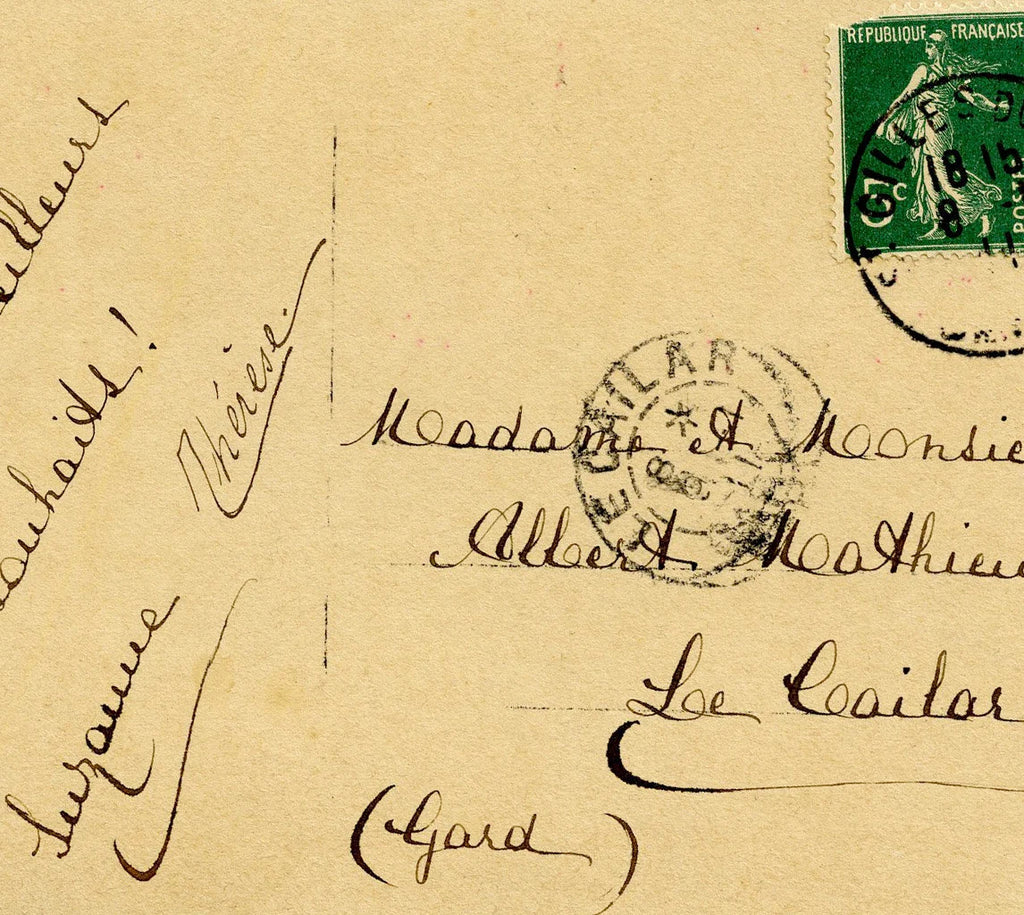 eilleurs
souhaits!
Thérèse.
Suzanne
REPUBLIQUE FRANÇAISE
5c
POST
ST. GILLES-DU
18 15
8
11
LE CAILAR
Madame A Monsie
Albert Mathieu
Le Cailar
(Gard)